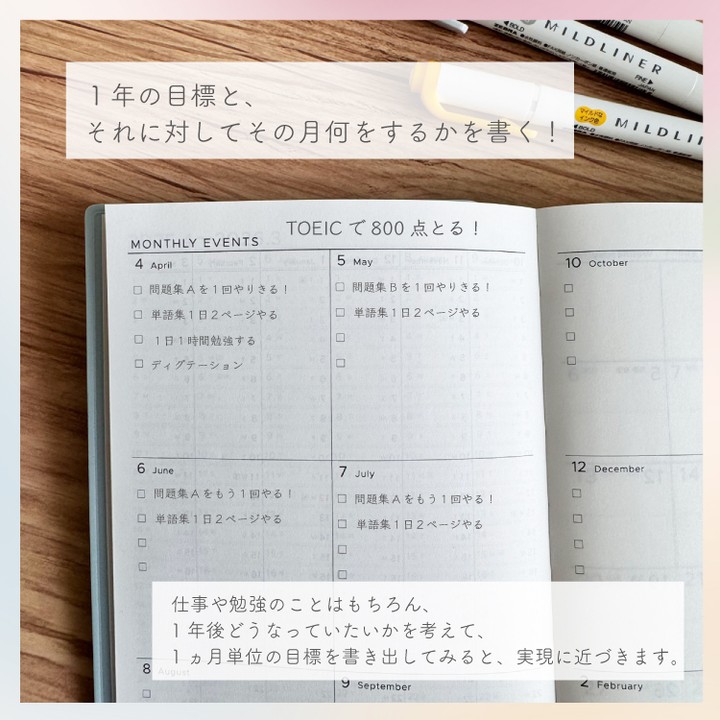 MILDLINER
BOLD
FINE
１年の目標と、
それに対してその月何をするかを書く！
マイルドな
インク色
BOLD
MILDLIN
TOEICで800点とる！
MONTHLY EVENTS
4 April
□ 問題集Ａを１回やりきる！
□ 単語集１日２ページやる
□ １日１時間勉強する
□ ディグテーション
5 May
□ 問題集Ｂを１回やりきる！
□ 単語集１日２ページやる
□
□
10 October
□
□
□
□
6 June
□ 問題集Ａをもう１回やる！
□ 単語集１日２ページやる
□
□
7 July
□ 問題集Ａをもう１回やる！
□ 単語集１日２ページやる
□
□
12 December
□
□
□
□
仕事や勉強のことはもちろん、
１年後どうなっていたいかを考えて、
１ヵ月単位の目標を書き出してみると、実現に近づきます。
8 August
9 September
2 February